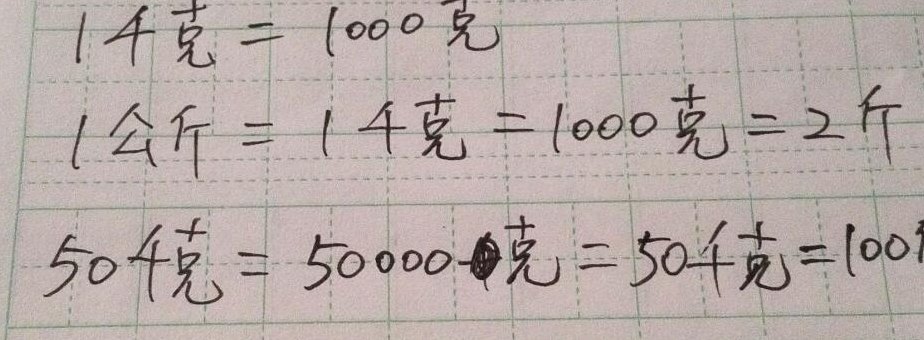 1千克=1000克
1公斤=1千克=1000克=2斤
50千克=50000克=50千克=100